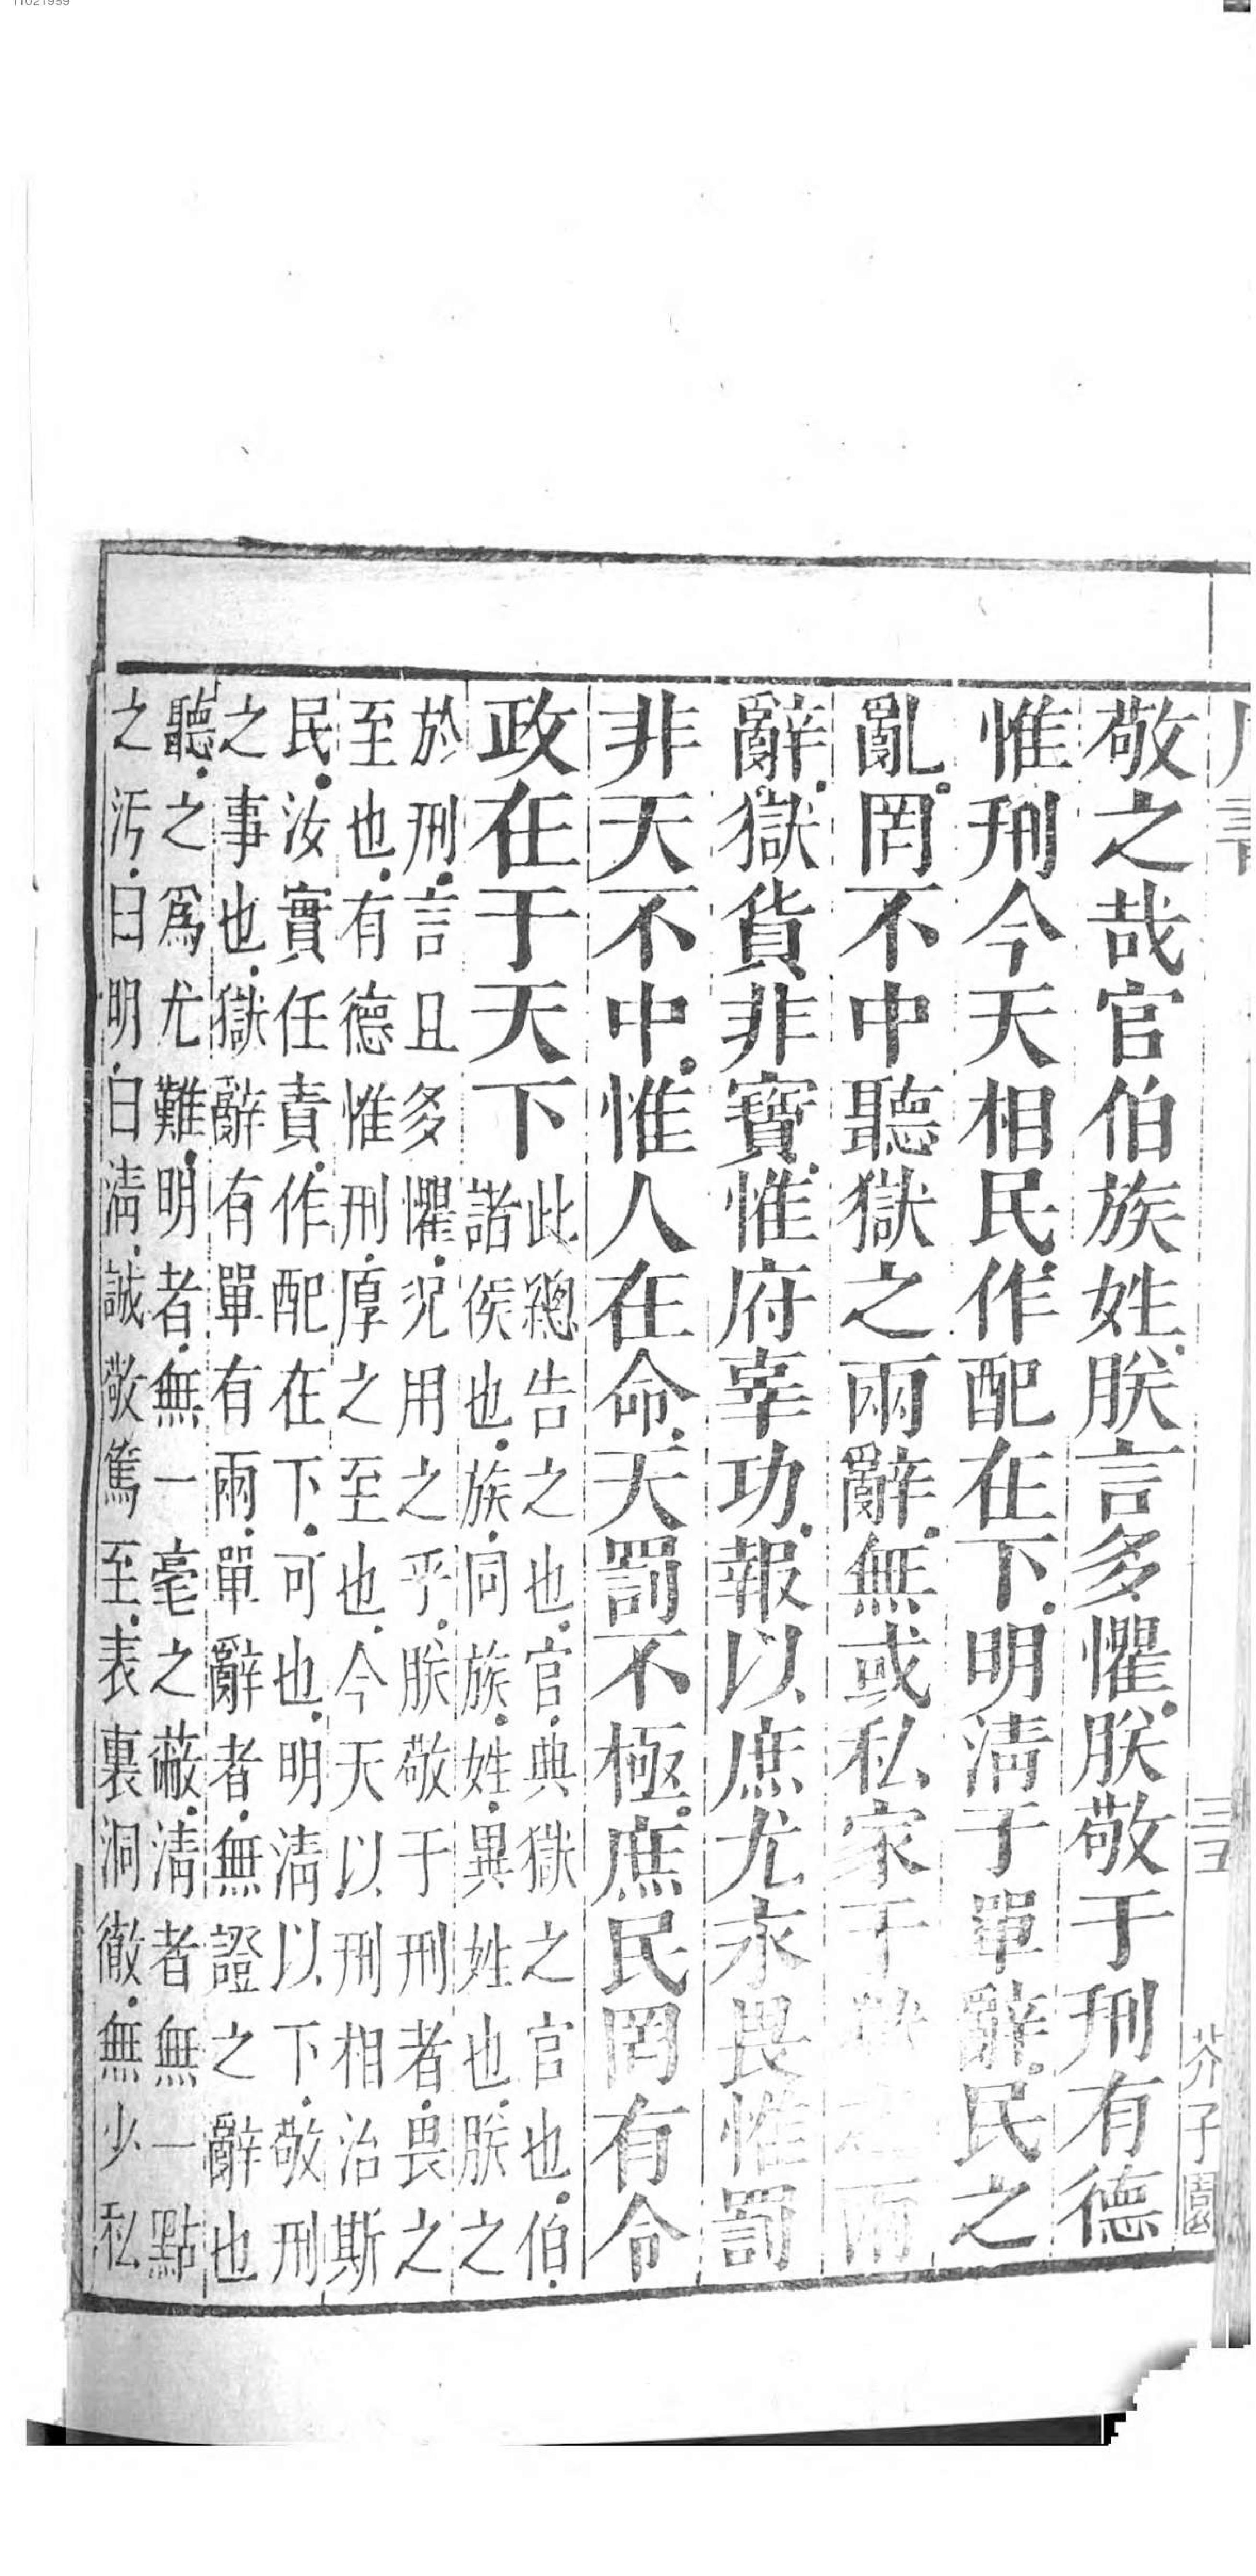 敬之哉官伯族姓朕言多懼朕敬于刑有德
惟刑今天相民作配在下明清于單辭民之
亂罔不中聽獄之兩辭無或私家于獄之兩
辭獄貨非寶惟府辜功報以庶尤永畏惟罰
非天不中惟人在命天罰不極庶民罔有令
政在于天下
此總告之也官典獄之官也伯
諸侯也族同族姓異姓也朕之
於刑言且多懼況用之乎朕敬于刑者畏之
至也有德惟刑厚之至也今天以刑相治斯
民汝實任責作配在下可也明清以下敬刑
之事也獄辭有單有兩單辭者無證之辭也
聽之爲尤難明者無一毫之蔽清者無一點
之汚曰明曰清誠敬篤至表裏洞徹無少私
芥子園